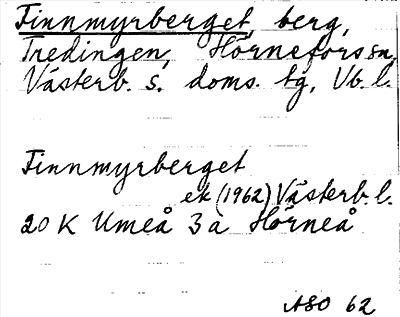 Finnmyrberget, berg,
Tredingen, Hörnefors sn,
Västerb. s. doms. tg, Vb. l.
Finnmyrberget
ek (1962) Västerb. l.
20 K Umeå 3 a Hörneå
ASO 62